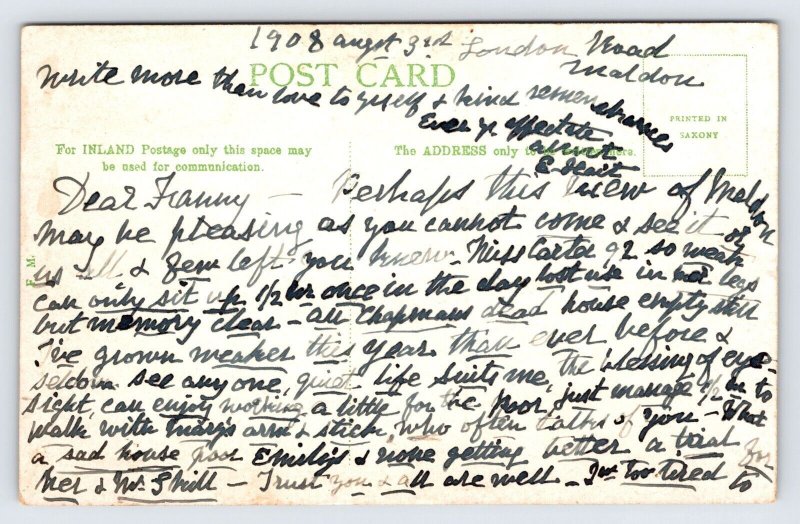 1908 augst 3rd London Road
Maldon
POST CARD
PRINTED IN
SAXONY
For INLAND Postage only this space may
be used for communication.
The ADDRESS only to be written here.
Dear Franny — Perhaps this view of Maldon
may be pleasing as you cannot come & see it or
us all & few left you knew. Miss Carter 92 so weak
can only sit up 1/2 hr once in the day lost use in her legs
but memory clear — all Chapmans dead house empty still
I've grown weaker this year than ever before &
seldom see anyone, quiet life suits me, the blessing of eye-
sight, can enjoy working a little for the poor, just manage 1/2 hr to
walk with Mary's arm & stick, who often talks of you — What
a sad house poor Emily's & none getting better a trial for
her & Mr Skill — Trust you & all are well — I'm too tired to
write more than love to yself & kind remembrances
Ever yr affectate
aunt
F. M.